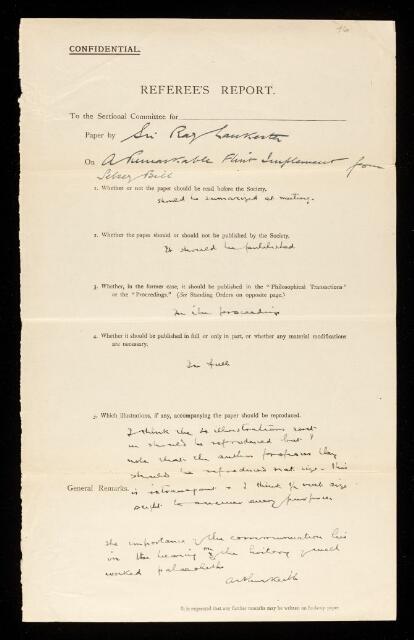 76
CONFIDENTIAL.
REFEREE'S REPORT.
To the Sectional Committee for
Paper by Sir Ray Lankester
On A Remarkable Flint Implement from
Selsey Bill
1. Whether or not the paper should be read before the Society.
should be summarized at meeting.
2. Whether the paper should or should not be published by the Society.
It should be published
3. Whether, in the former case, it should be published in the "Philosophical Transactions"
or the "Proceedings." (See Standing Orders on opposite page.)
In the proceedings
4. Whether it should be published in full or only in part, or whether any material modifications
are necessary.
In full
5. Which illustrations, if any, accompanying the paper should be reproduced.
I think the 4 illustrations sent
in should be reproduced but I
note that the author proposes they
should be reproduced nat size. This
General Remarks. is extravagant & I think ½ nat size
ought to answer every purpose
The importance of the communication lies
in the bearing on the history of well
worked palaeoliths
Arthur Keith
It is requested that any further remarks may be written on foolscap paper.